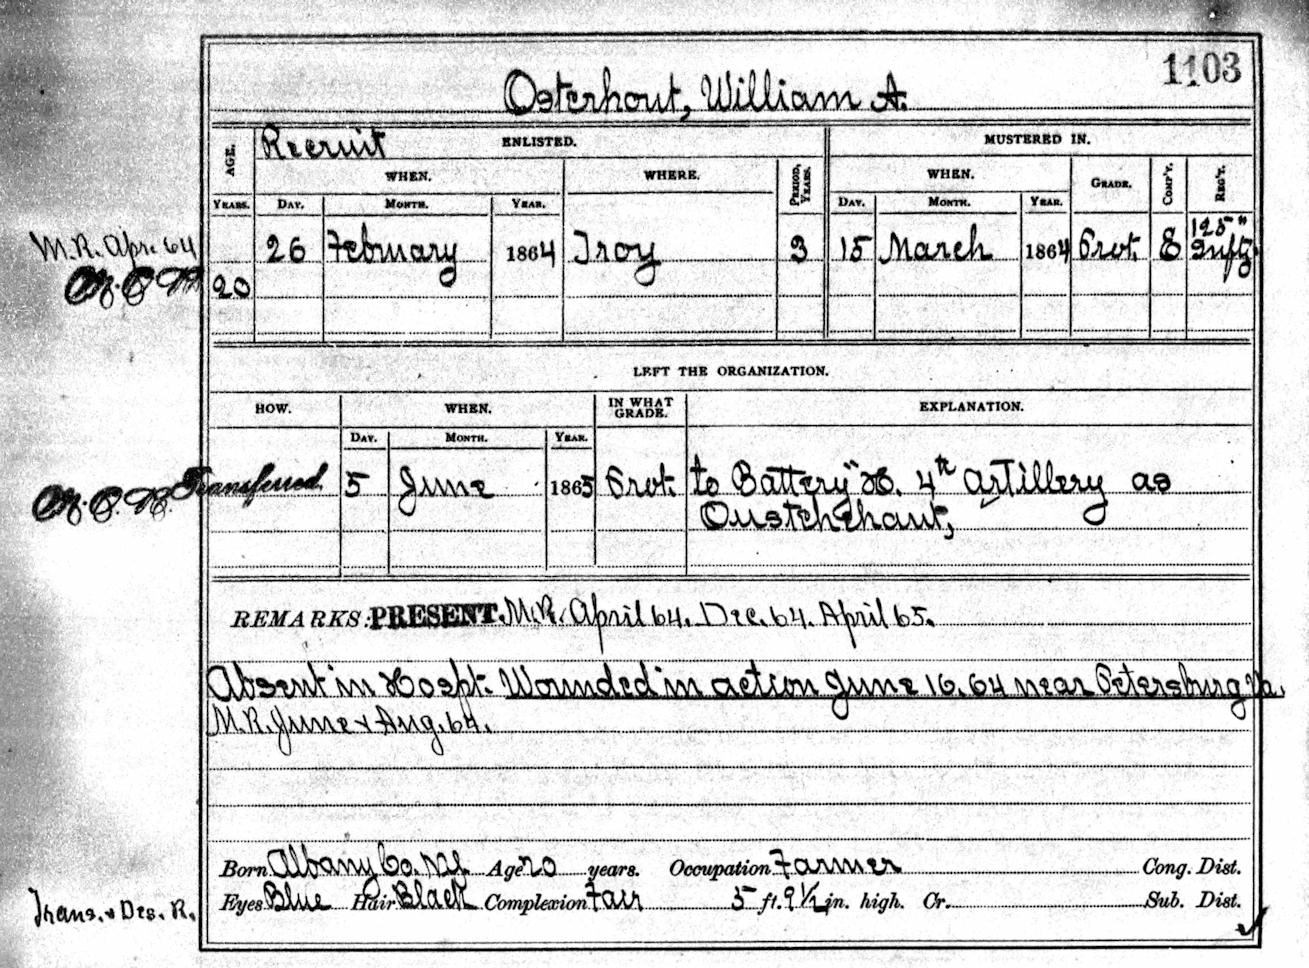 1103
Osterhout, William A.
AGE. Recruit ENLISTED. MUSTERED IN.
WHEN. WHERE. PERIOD, YEARS. WHEN. GRADE. COMP'Y. REG'T.
YEARS. DAY. MONTH. YEAR. DAY. MONTH. YEAR.
M.R. Apr. 64 26 February 1864 Troy 3 15 March 1864 Prvt. E 125" Infty.
20
LEFT THE ORGANIZATION.
HOW. WHEN. IN WHAT GRADE. EXPLANATION.
DAY. MONTH. YEAR.
Transferred 5 June 1865 Prvt. to Battery "H. 4th Artillery as
Oustehehaut,
REMARKS: PRESENT. M.R. April 64. Dec. 64. April 65.
Absent in Hospt. Wounded in action June 16. 64 near Petersburg Va.
M.R. June & Aug. 64.
Born Albany Co. NY Age 20 years. Occupation Farmer Cong. Dist.
Trans. & Des. R. Eyes Blue Hair Black Complexion Fair 5 ft. 9 1/2 in. high. Cr. Sub. Dist.